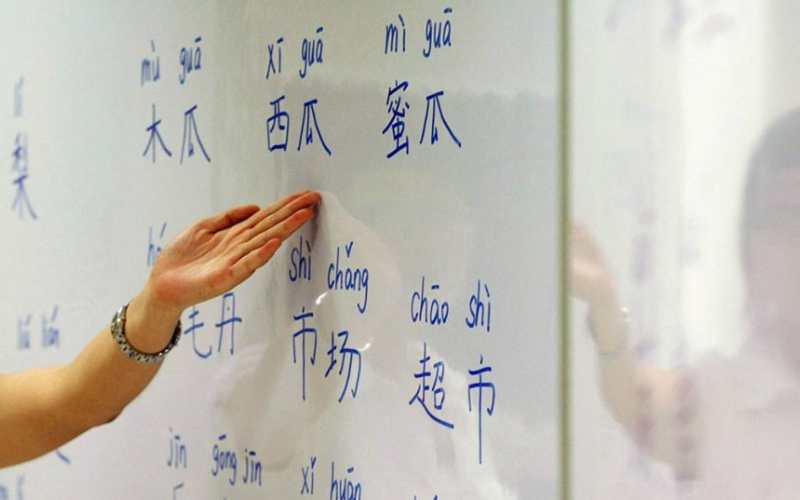 mù guā xī guā mì guā
木瓜 西瓜 蜜瓜
lí
梨
毛丹
shì chǎng chāo shì
市场 超市
liú lián
jīn gōng jīn xǐ huān